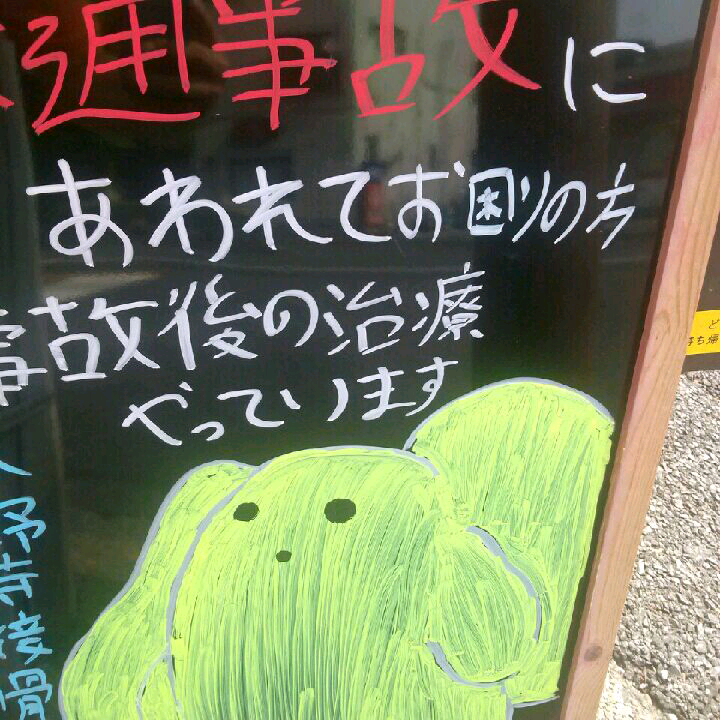 通事故に
あわれてお困りの方
事故後の治療
やっています
予井接骨